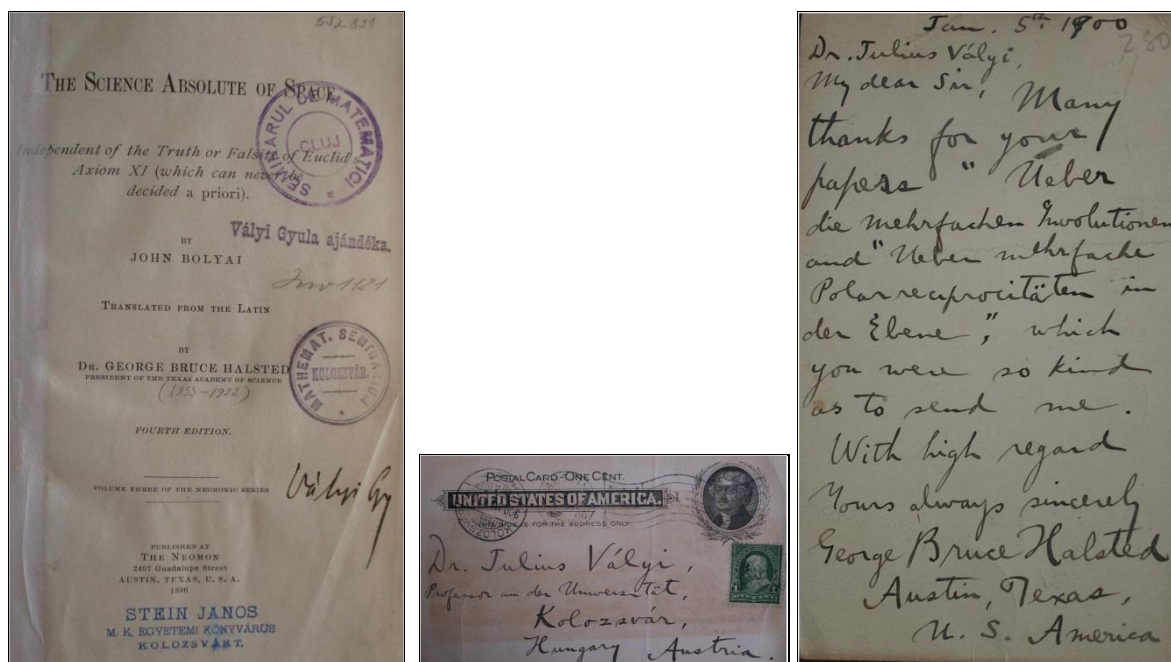 552851
THE SCIENCE ABSOLUTE OF SPACE
Independent of the Truth or Falsity of Euclid's
Axiom XI (which can never be
decided a priori).
SEMINARUL DE MATEMATICI
CLUJ
BY
JOHN BOLYAI
Vályi Gyula ajándéka.
TRANSLATED FROM THE LATIN
BY
DR. GEORGE BRUCE HALSTED
PRESIDENT OF THE TEXAS ACADEMY OF SCIENCE
(1853-1922)
MATHEMAT. SEMINARIUM
KOLOZSVÁR.
FOURTH EDITION.
VOLUME THREE OF THE NEOMONIC SERIES
Vályi Gy
PUBLISHED AT
THE NEOMON
2407 Guadalupe Street
AUSTIN, TEXAS, U. S. A.
1896
STEIN JÁNOS
M. K. EGYETEMI KÖNYVÁRUS
KOLOZSVÁRT.
POSTAL CARD - ONE CENT.
UNITED STATES OF AMERICA.
THIS SIDE IS FOR THE ADDRESS ONLY.
Dr. Julius Vályi,
Professor an der Universität,
Kolozsvár,
Hungary Austria.
Jan. 5th 1900
280
Dr. Julius Vályi,
My dear Sir,
Many
thanks for your
papers "Ueber
die mehrfachen Involutionen
and "Ueber mehrfache
Polarreciprocitäten in
der Ebene", which
you were so kind
as to send me.
With high regard
Yours always sincerely
George Bruce Halsted
Austin, Texas,
U. S. America